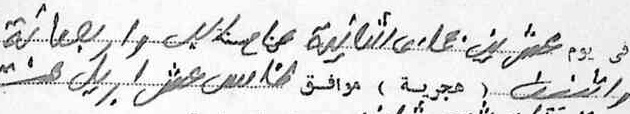 في يوم عشرين جمادى الثانية عام واربعمائة
واثنين ( هجرية ) موافق خامس عشر ابريل